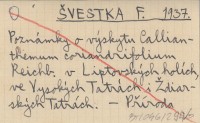 O ŠVESTKA F. 1937.
Poznámky o výskytu Callian-
themum coriandrifolium
Reichb. v Liptovských holích,
ve Vysokých Tatrách, Ždiar-
ských Tatrách. — Příroda